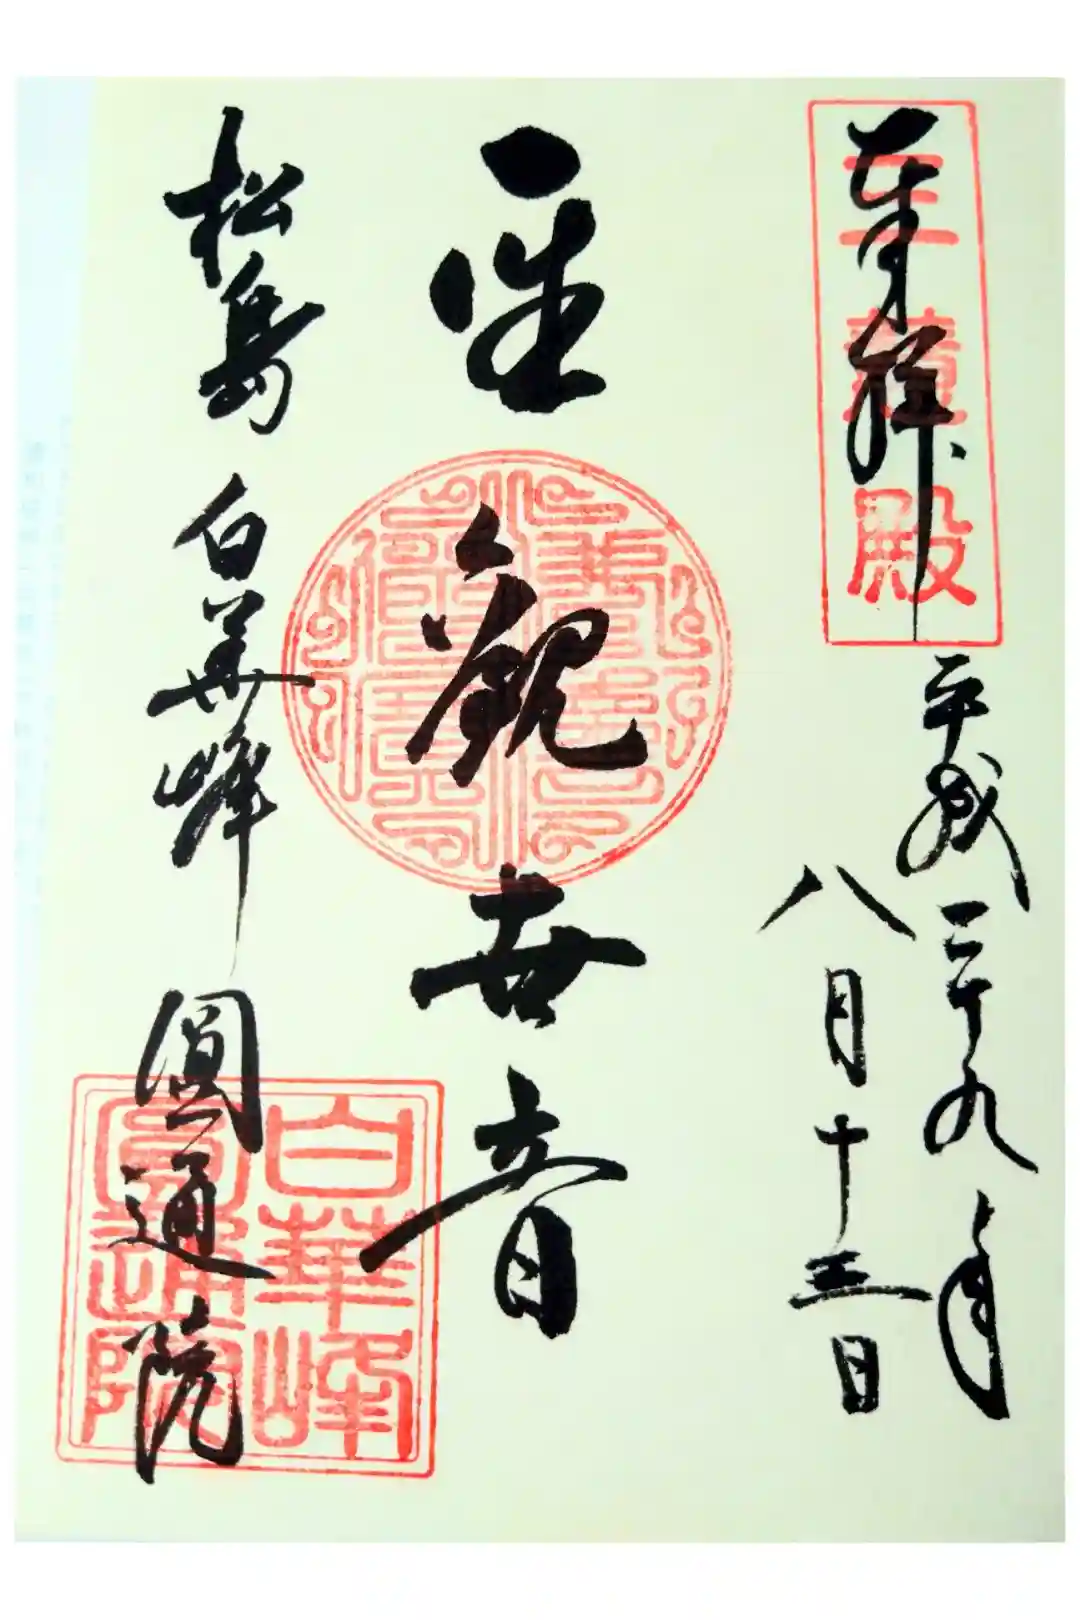 奉拝
三慧殿
平成二十九年
八月十三日
聖觀世音
松島 白華峰 圓通院
白華峰
圓通院